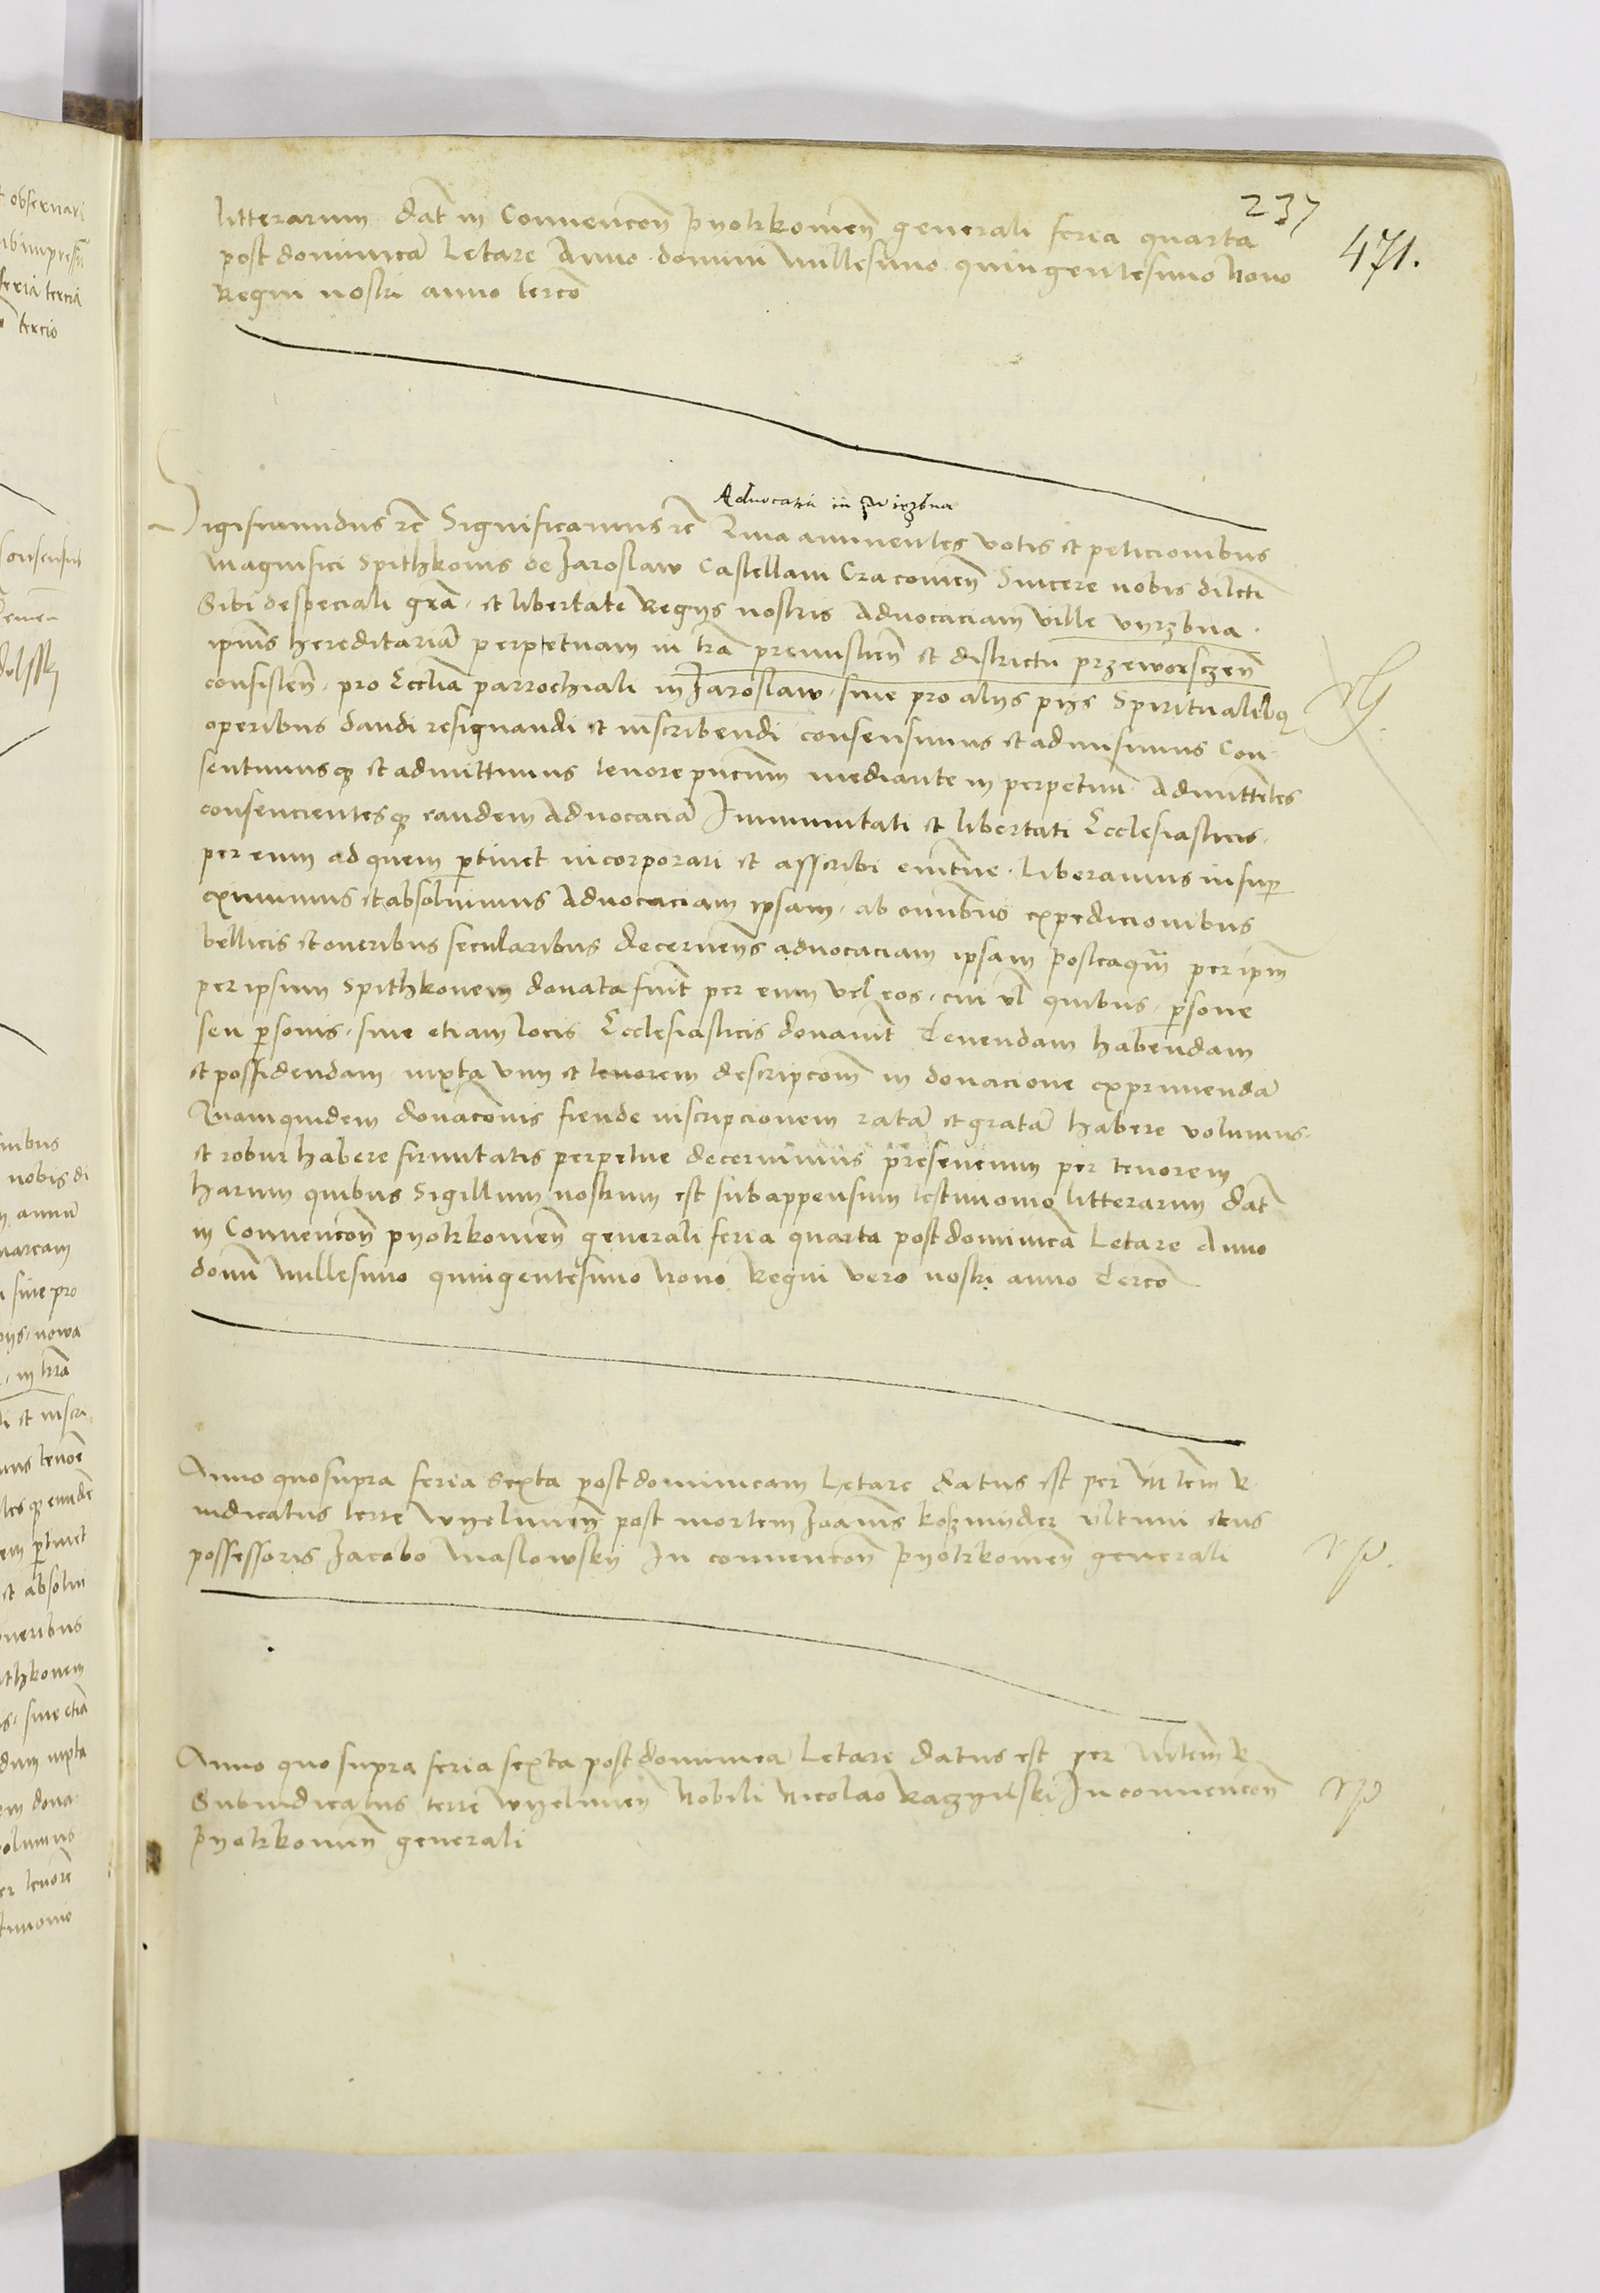 237
471.
litterarum dat in Convencon pyotrkovien generali feria quarta
post dominica Letare Anno domini Millesimo quingentesimo Nono
Regni nostri anno tercio
Advocatia in Wierzbna
Sigismundus etc Significamus etc Quia annuentes votis et peticionibus
Magnifici Spithkonis de Jaroslaw Castellani Cracovien Sincere nobis dilcti
Sibi de speciali gra et libertate Regys nostris Advocaciam ville vyrzbna
ipius hereditaria perpetuam in tra premislien et districtu przeworsczen
consisten pro Ecclia parrochiali in Jaroslaw sive pro alys pys Spiritualibq
operibus dandi resignandi et inscribendi consensimus et admisimus Con-
sentimusq et admittimus tenore pncium mediante in perpetuu Admittentes
consencientesq eandem Advocacia Immunitati et libertati Ecclesiasticis
per eum ad quem ptinet incorporari et asscribi evitne Liberamus insup
eximimus et absolvimus Advocaciam ipsam ab omnibus expedicionibus
bellicis et oneribus secularibus decernens advocaciam ipsam posteaqm per ipm
per ipsum Spithkonem donata fuit per eum vel eos cui vl quibus psone
seu psonis sive etiam locis Ecclesiasticis donavit Tenendam habendam
et possidendam iuxta vim et tenorem descripcom in donacione exprimenda
Quamquidem donaconis fiende inscripcionem rata et grata habere volumus
et robur habere firmitatis perpetue decernimus presencium per tenorem
harum quibus Sigillum nostrum est subappensum testimonio litterarum dat
in Convencon pyotrkovien generali feria quarta post dominica Letare Anno
domi Millesimo quingentesimo Nono Regni vero nostri anno Tercio
Anno quo supra feria Sexta post dominicam Letare datus est per M tem R
iudicatus terre wyelunen post mortem Joanis kozminder ultimi eius
possessoris Jacobo Maslowsky In convencon pyotrkovien generali
Anno quo supra feria sexta post dominica Letare datus est per M tem R
Subiudicatus terre wyelunen Nobili Nicolao Raczynski In convencon
pyotrkovien generali